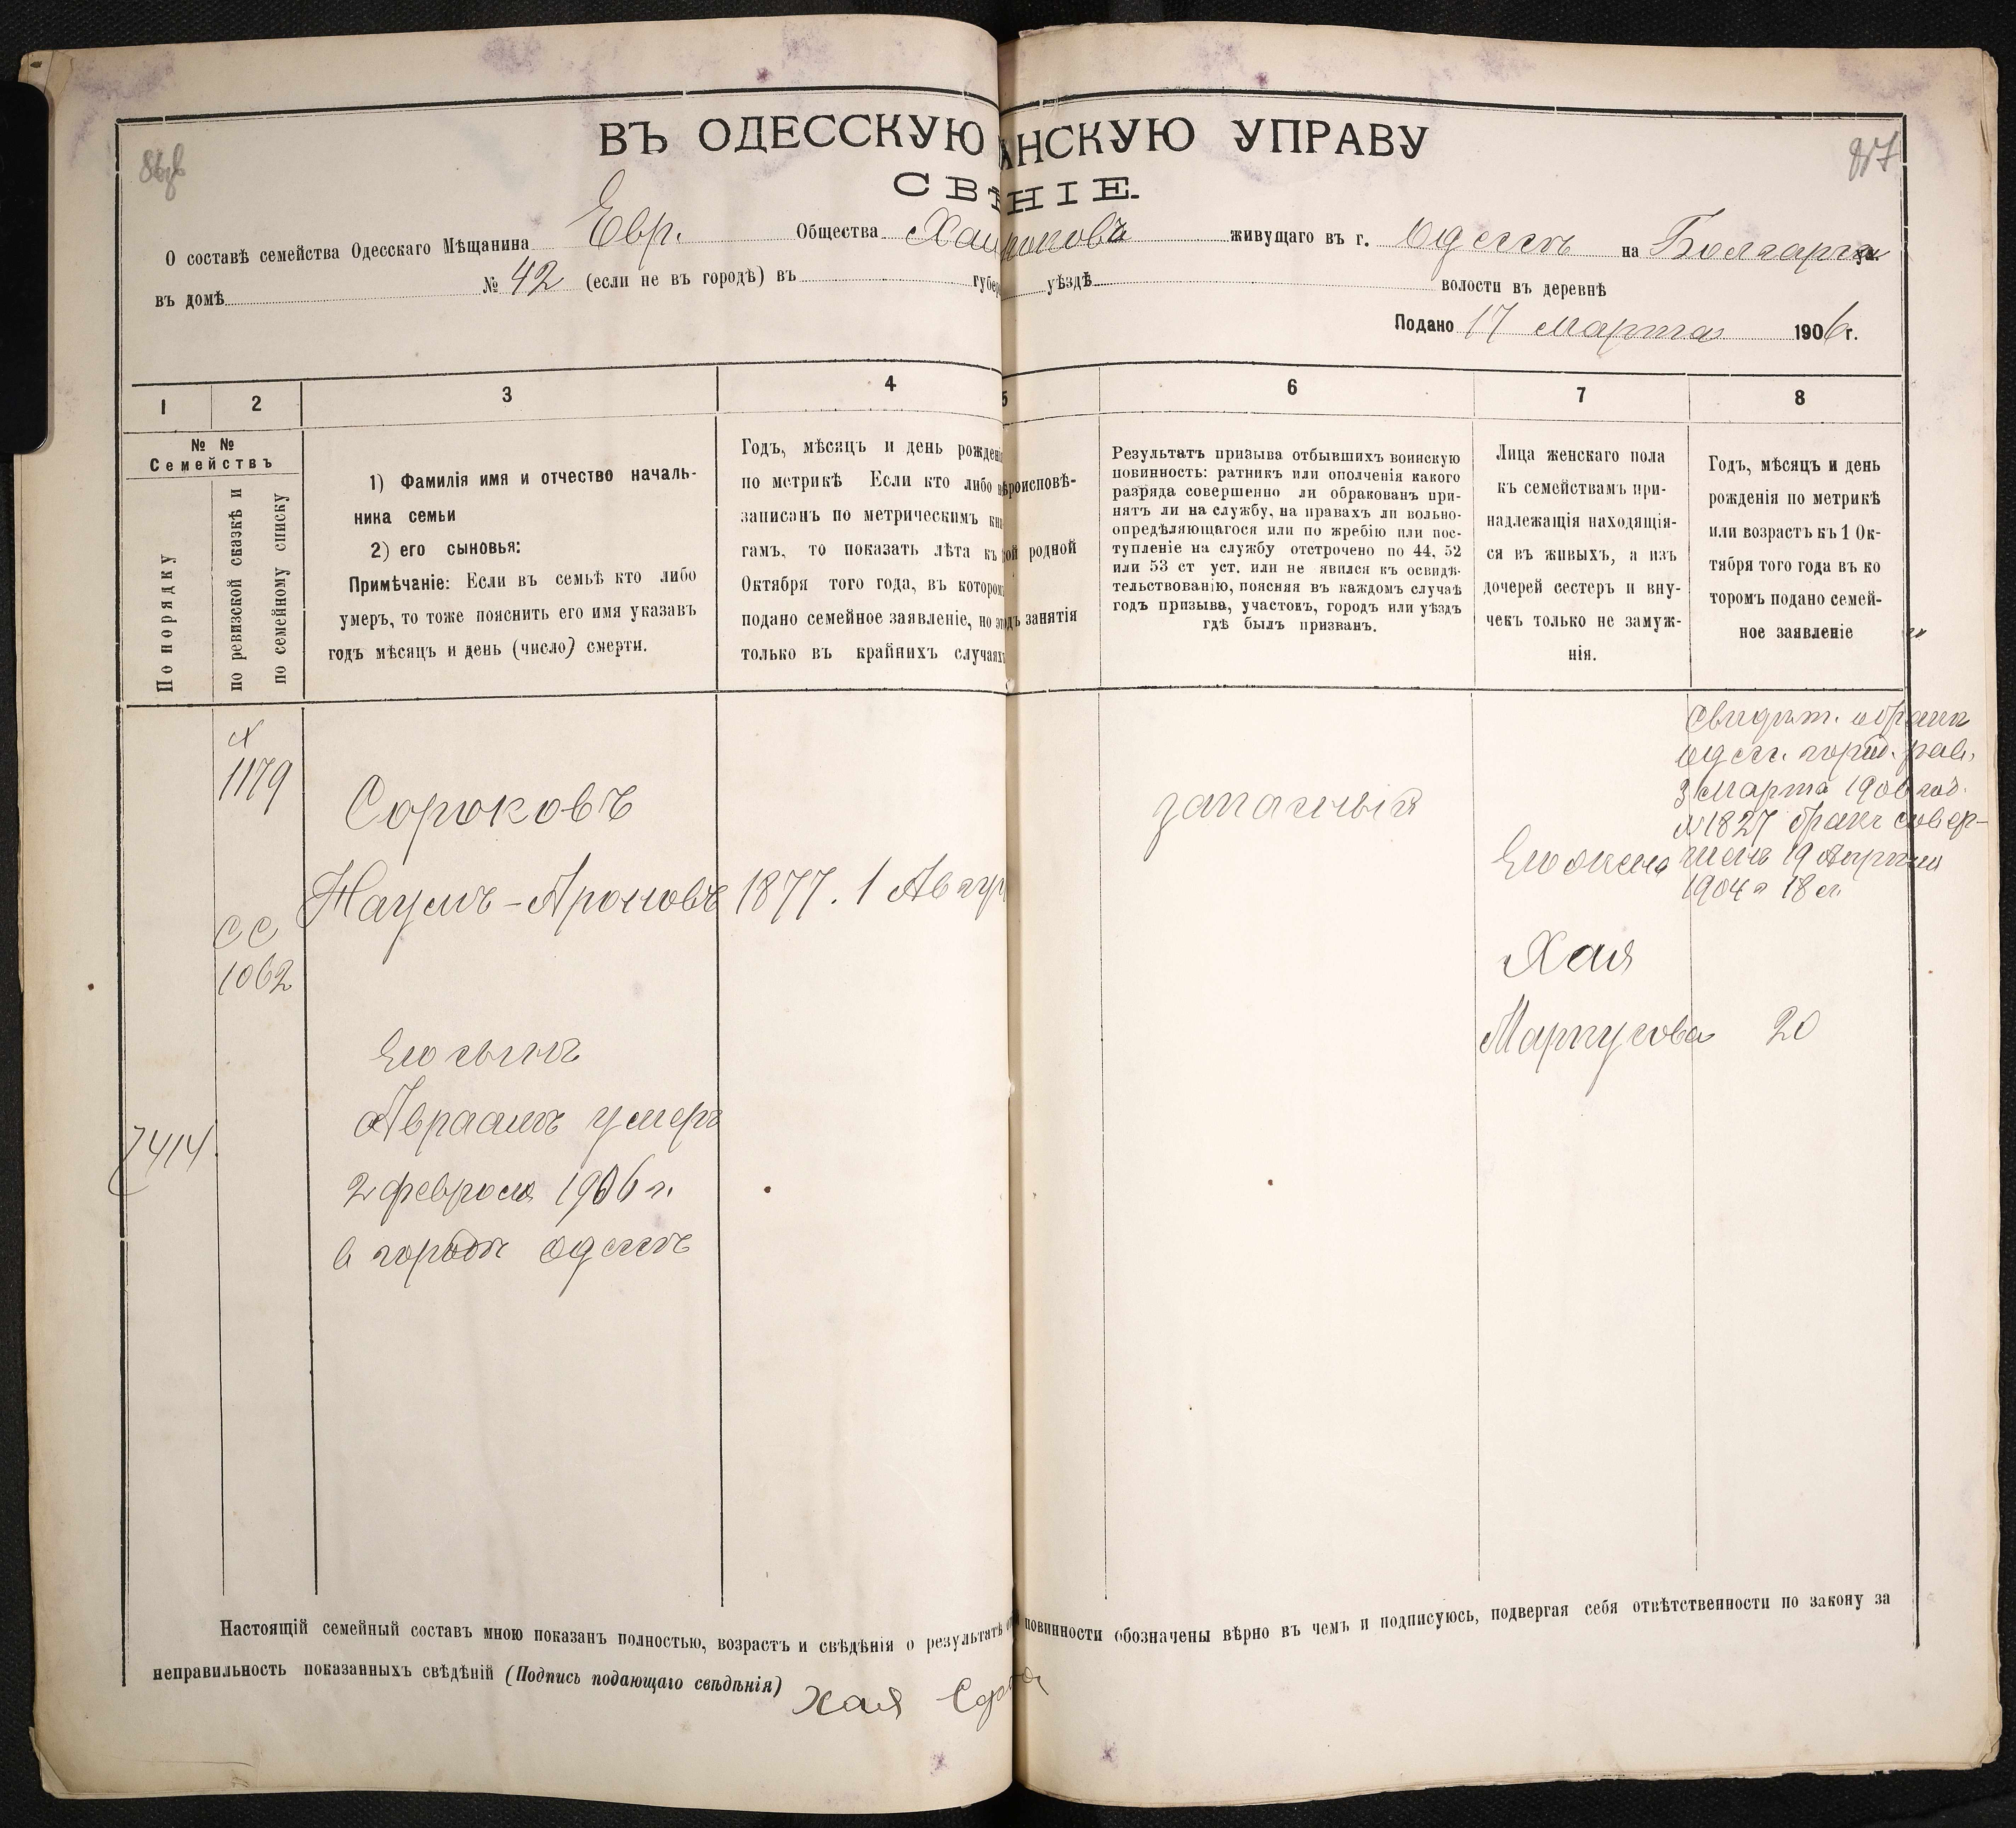 ВЪ ОДЕССКУЮ НСКУЮ УПРАВУ
СВѢ НІЕ.
О составѣ семейства Одесскаго Мѣщанина Евр. Общества живущаго въ г. Одессѣ на Болгарск ул.
въ домѣ № 42 (если не въ городѣ) въ губер уѣздѣ волости въ деревнѣ
Подано 17 Марта 1906 г.
1 2 3 4 5 6 7 8
№ №
Семействъ
По порядку
по ревизской сказкѣ и
по семейному списку
1) Фамилія имя и отчество началь-
ника семьи
2) его сыновья:
Примѣчаніе: Если въ семьѣ кто либо
умеръ, то тоже пояснить его имя указавъ
годъ мѣсяцъ и день (число) смерти.
Годъ, мѣсяцъ и день рожденія
по метрикѣ Если кто либо не
записанъ по метрическимъ кни
гамъ, то показать лѣта къ
Октября того года, въ которомъ
подано семейное заявленіе, но это
только въ крайнихъ случаяхъ
ѣроисповѣ-
ой родной
дъ занятія
Результатъ призыва отбывшихъ воинскую
повинность: ратникъ или ополченія какого
разряда совершенно ли обракованъ при-
нятъ ли на службу, на правахъ ли вольно-
опредѣляющагося или по жребію или пос-
тупленіе на службу отстрочено по 44, 52
или 53 ст уст. или не явился къ освидѣ-
тельствованію, поясняя въ каждомъ случаѣ
годъ призыва, участокъ, городъ или уѣздъ
гдѣ былъ призванъ.
Лица женскаго пола
къ семействамъ при-
надлежащія находящія-
ся въ живыхъ, а изъ
дочерей сестеръ и вну-
чекъ только не замуж-
нія.
Годъ, мѣсяцъ и день
рожденія по метрикѣ
или возрастъ къ 1 Ок-
тября того года въ ко
торомъ подано семей-
ное заявленіе
1179
Сороковъ
Наумъ-Ароновъ 1877. 1 Авгу
сс
1062
Его сынъ
Авраамъ умеръ
2 февраля 1906 г.
в городѣ Одессѣ
7414
запасный
Его жена
Хая
20
Свидѣт. о бракѣ
Одесс. город. рав.
3 Марта 1906 год.
№ 1827 бракъ совер-
шенъ 19 Апрѣля
1904 г
Настоящій семейный составъ мною показанъ полностью, возрастъ и свѣдѣнія о результатѣ повинности обозначены вѣрно въ чемъ и подписуюсь, подвергая себя отвѣтственности по закону за
неправильность показанныхъ свѣдѣній (Подпись подающаго свѣдѣнія)
Хая